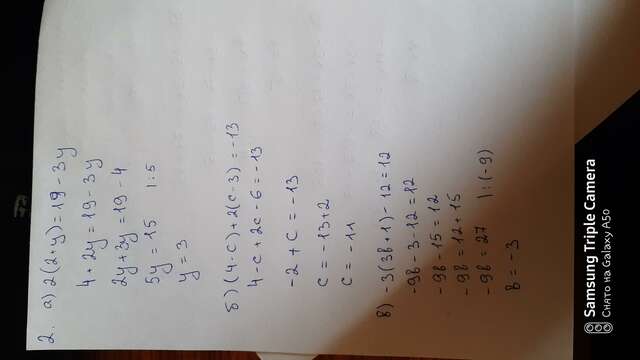 2. а) 2(2+y)=19-3y
4+2y=19-3y
2y+3y=19-4
5y=15 |:5
y=3
б) (4-c)+2(c-3)=-13
4-c+2c-6=-13
-2+c=-13
c=-13+2
c=-11
в) -3(3в+1)-12=12
-9в-3-12=12
-9в-15=12
-9в=12+15
-9в=27 |:(-9)
в=-3
Samsung Triple Camera
Снято на Galaxy A50